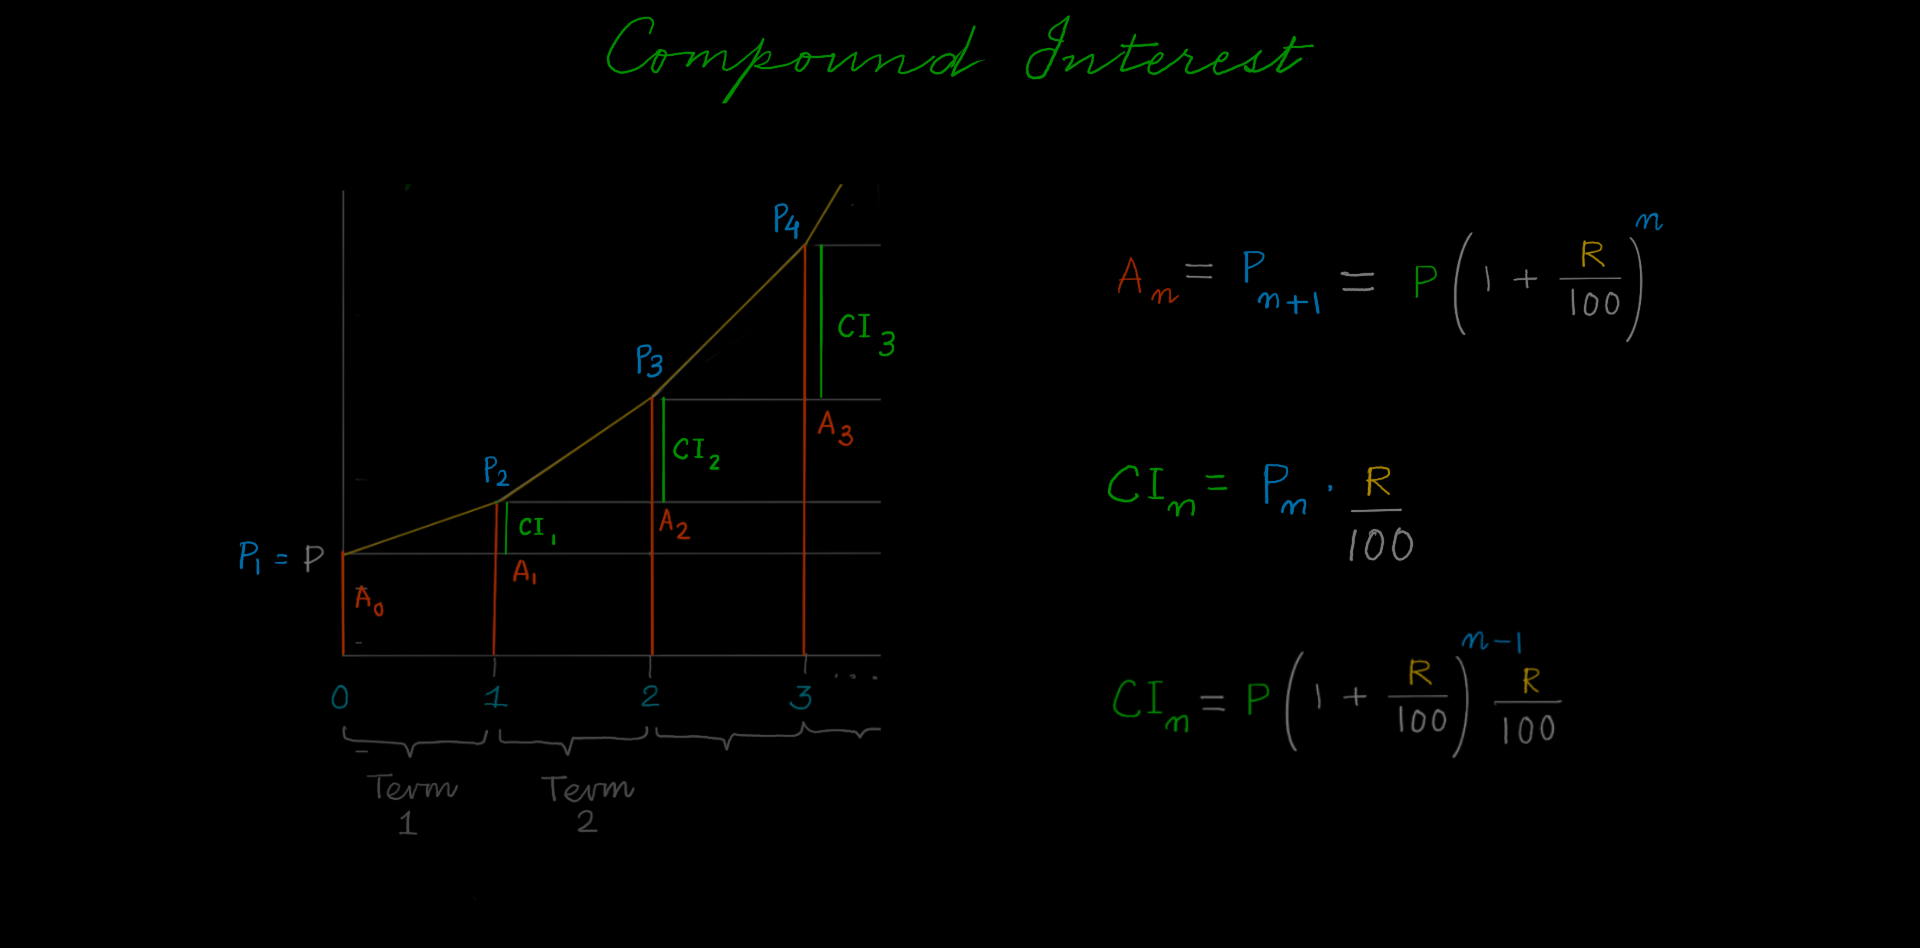 Compound Interest
P₄
CI₃
P₃
A₃
CI₂
P₂
A₂
CI₁
P₁ = P
A₁
A₀
0 1 2 3 ....
Term 1
Term 2
Aₙ = Pₙ₊₁ = P(1 + R/100)ⁿ
CIₙ = Pₙ · R/100
CIₙ = P(1 + R/100)ⁿ⁻¹ R/100